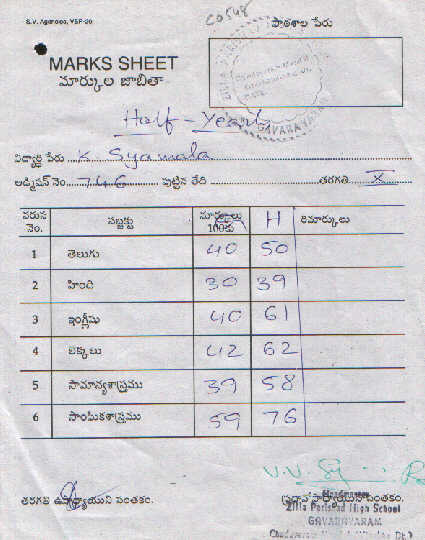 S.V. Agencies, VSP-20
C0548
పాఠశాల పేరు
MARKS SHEET
మార్కుల జాబితా
GAVARAVARAM
Half-Yearly
విద్యార్థి పేరు K. Syamala
అడ్మిషన్ నెం. 746 పుట్టిన తేది తరగతి X
వరుస నెం. సబ్జక్టు మార్కులు 100కు H రిమార్కులు
1 తెలుగు 40 50
2 హింది 30 39
3 ఇంగ్లీషు 40 61
4 లెక్కలు 42 62
5 సామాన్యశాస్త్రము 39 58
6 సాంఘికశాస్త్రము 59 76
తరగతి ఉపాధ్యాయుని సంతకం. (ప్రధానోపాధ్యాయుని సంతకం.
Headmaster
Zilla Parishad High School
GAVARAVARAM